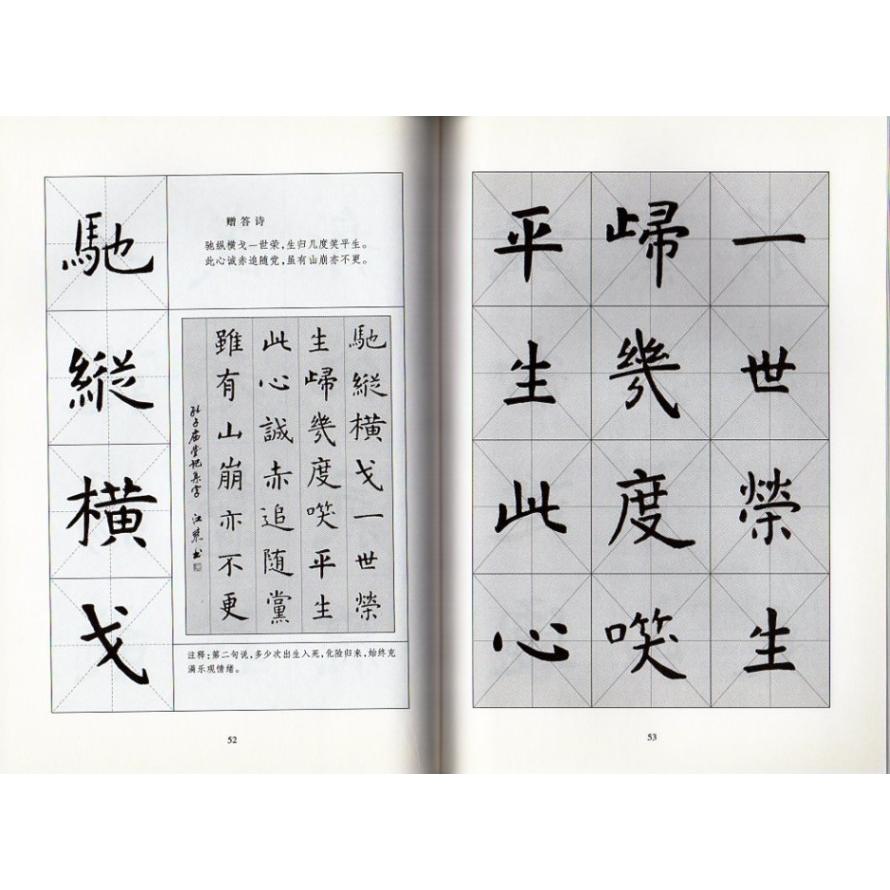 馳
縱
橫
戈
赠答诗
驰纵横戈一世荣，生归几度笑平生。
此心诚赤追随党，虽有山崩亦不更。
馳縱橫戈一世榮
生歸幾度咲平生
此心誠赤追隨黨
雖有山崩亦不更
孔子庙堂记集字 江 書
注释：第二句说，多少次出生入死，化险归来，始终充
满乐观情绪。
52
一世榮生
歸幾度咲
平生此心
53